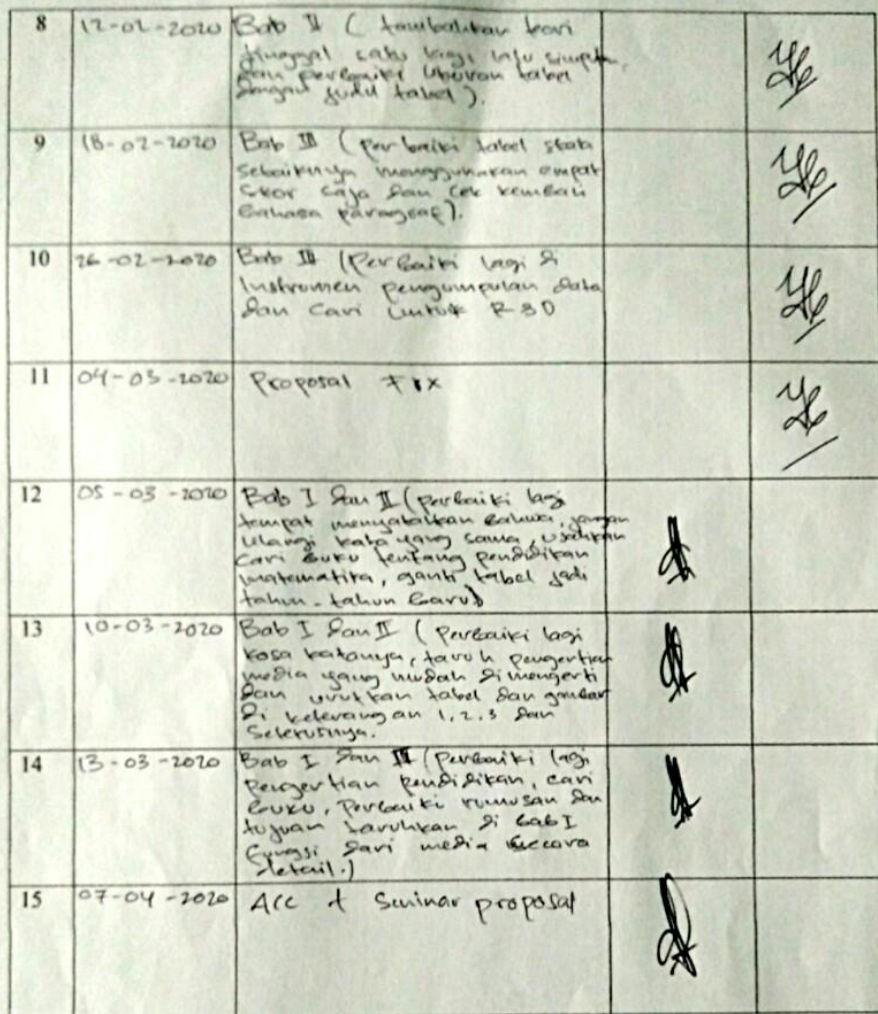 8 12-02-2020 Bab II ( tambahkan teori
tinggal satu lagi, lalu
dan perbaiki ukuran tabel
dengan judul tabel).
9 18-02-2020 Bab III (perbaiki tabel
sebaiknya menggunakan empat
skor saja dan cek kembali
bahasa paragraf).
10 26-02-2020 Bab III (Perbaiki lagi di
Instrumen pengumpulan data
dan cari untuk R&D
11 04-03-2020 Proposal
12 05-03-2020 Bab I dan II (perbaiki lagi
tempat menyatakan bahwa, jangan
ulangi kata yang sama, usahkan
cari buku tentang pendidikan
matematika, ganti tabel jadi
tahun-tahun baru)
13 10-03-2020 Bab I dan II (Perbaiki lagi
kosa katanya, taruh pengertian
media yang mudah dimengerti
dan urutkan tabel dan gambar
di keterangan 1, 2, 3 dan
Seterusnya.
14 13-03-2020 Bab I dan (Perbaiki lagi
pengertian pendidikan, cari
buku, Perbaiki rumusan dan
tujuan taruhkan di bab I
fungsi dari media secara
detail.)
15 07-04-2020 Acc Seminar proposal